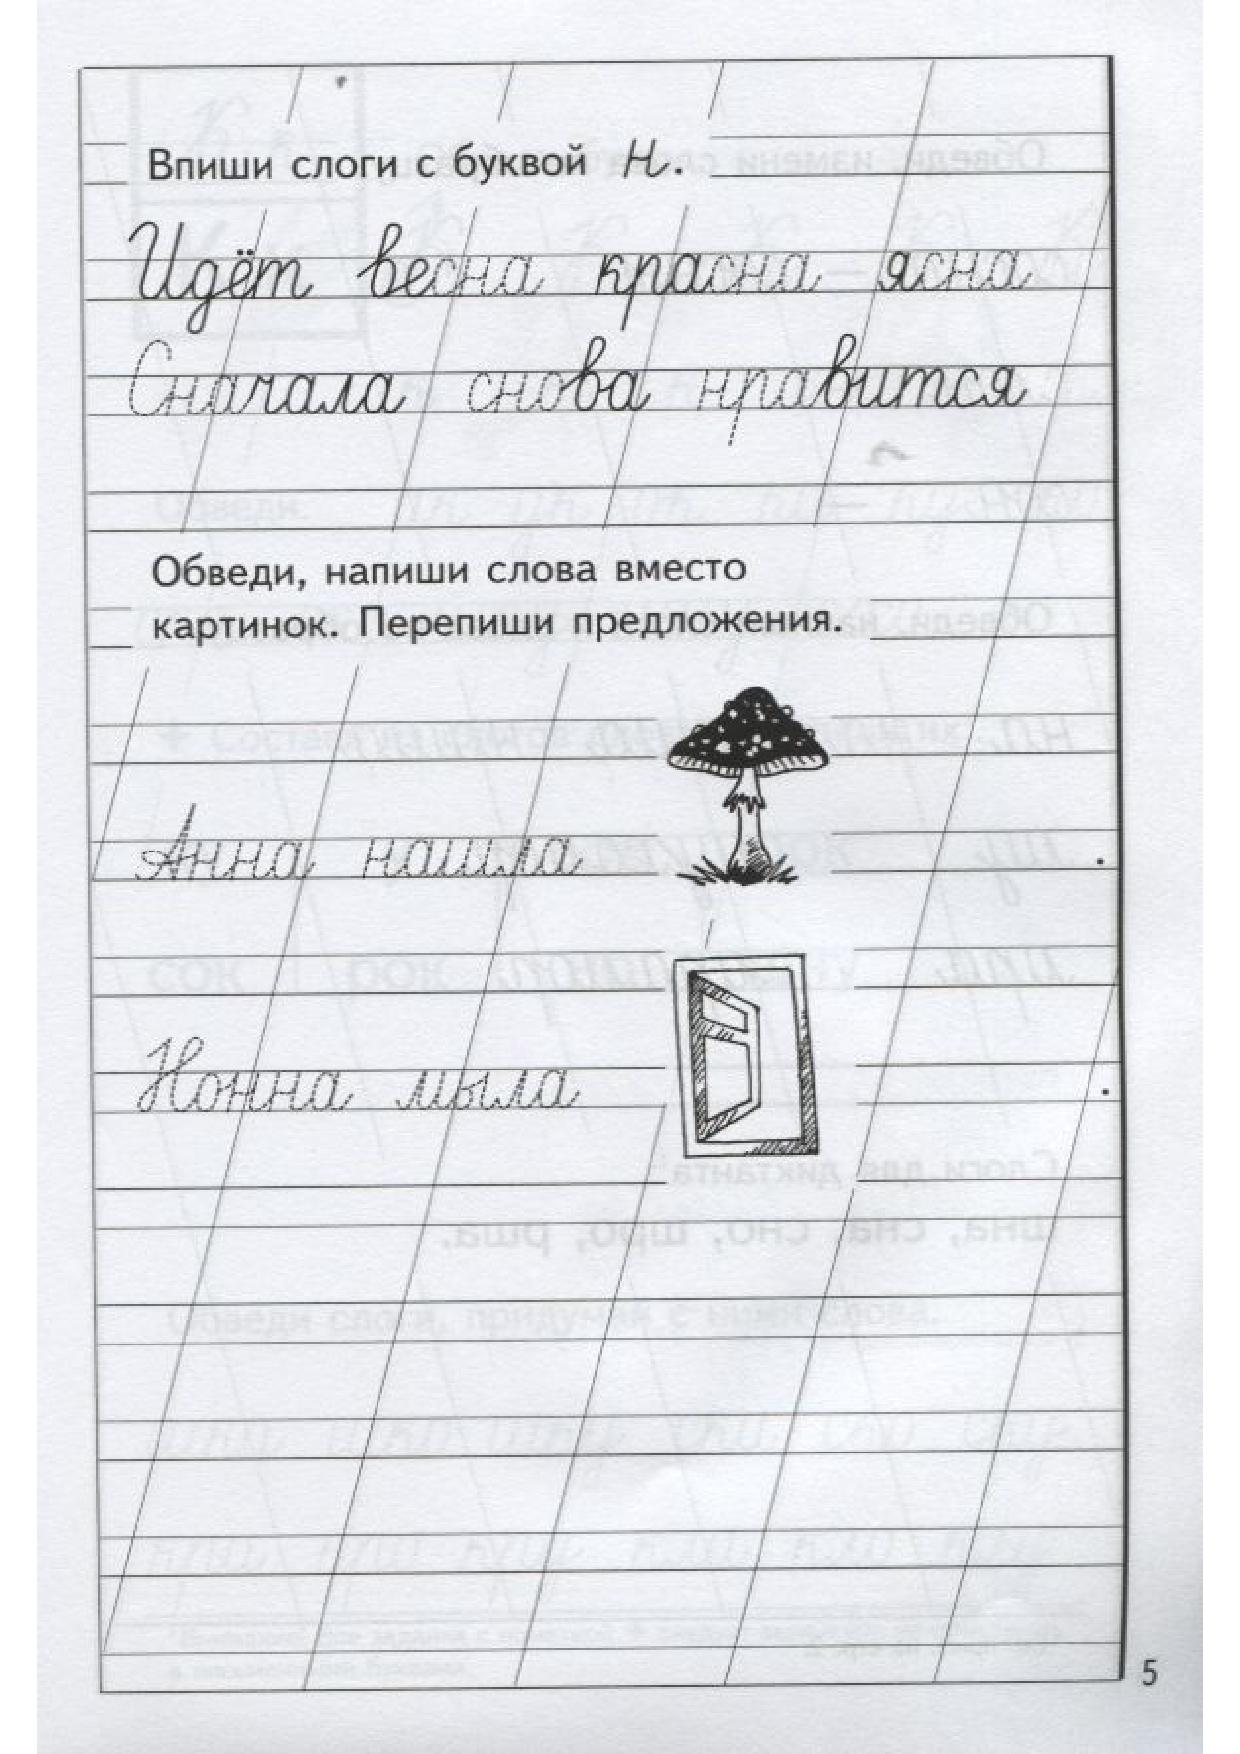 Впиши слоги с буквой Н.
Идёт весна красна ясна
Сначала снова нравится
Обведи, напиши слова вместо
картинок. Перепиши предложения.
Анна нашла .
Нонна мыла .
5